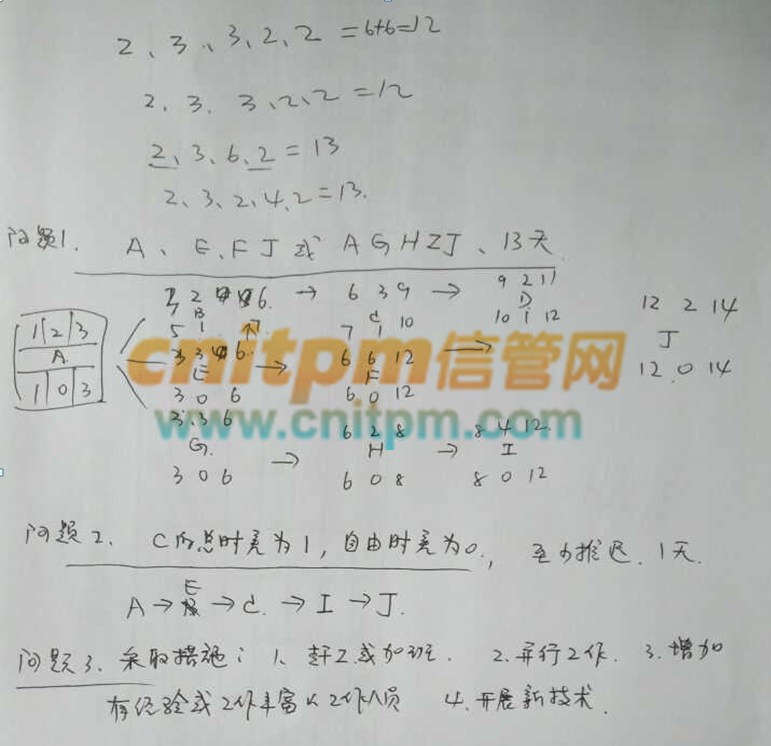 2、3、3、2、2 =6+6=12
2、3、3、2、2 =12
2、3、6、2 = 13
2、3、2、4、2 = 13.
问题1. A、E、F J 或 A G H I J、13天
2 6. → 6 3 9 → 9 2 11
B C D
5 1 7 1 10 10 1 12
12 2 14
J
12 0 14
1 2 3
A
1 0 3
3 3 6 6 6 12
E → F →
3 0 6 6 0 12
3 3 6 6 2 8 8 4 12
G. → H → I
3 0 6 6 0 8 8 0 12
cnitpm信管网
www.cnitpm.com
问题2. C的总时差为1，自由时差为0.， 至少推迟.1天.
A → E → C. → I → J.
问题3. 采取措施： 1、赶工或加班. 2.并行工作. 3.增加
有经验或工作丰富的工作人员 4.开展新技术.